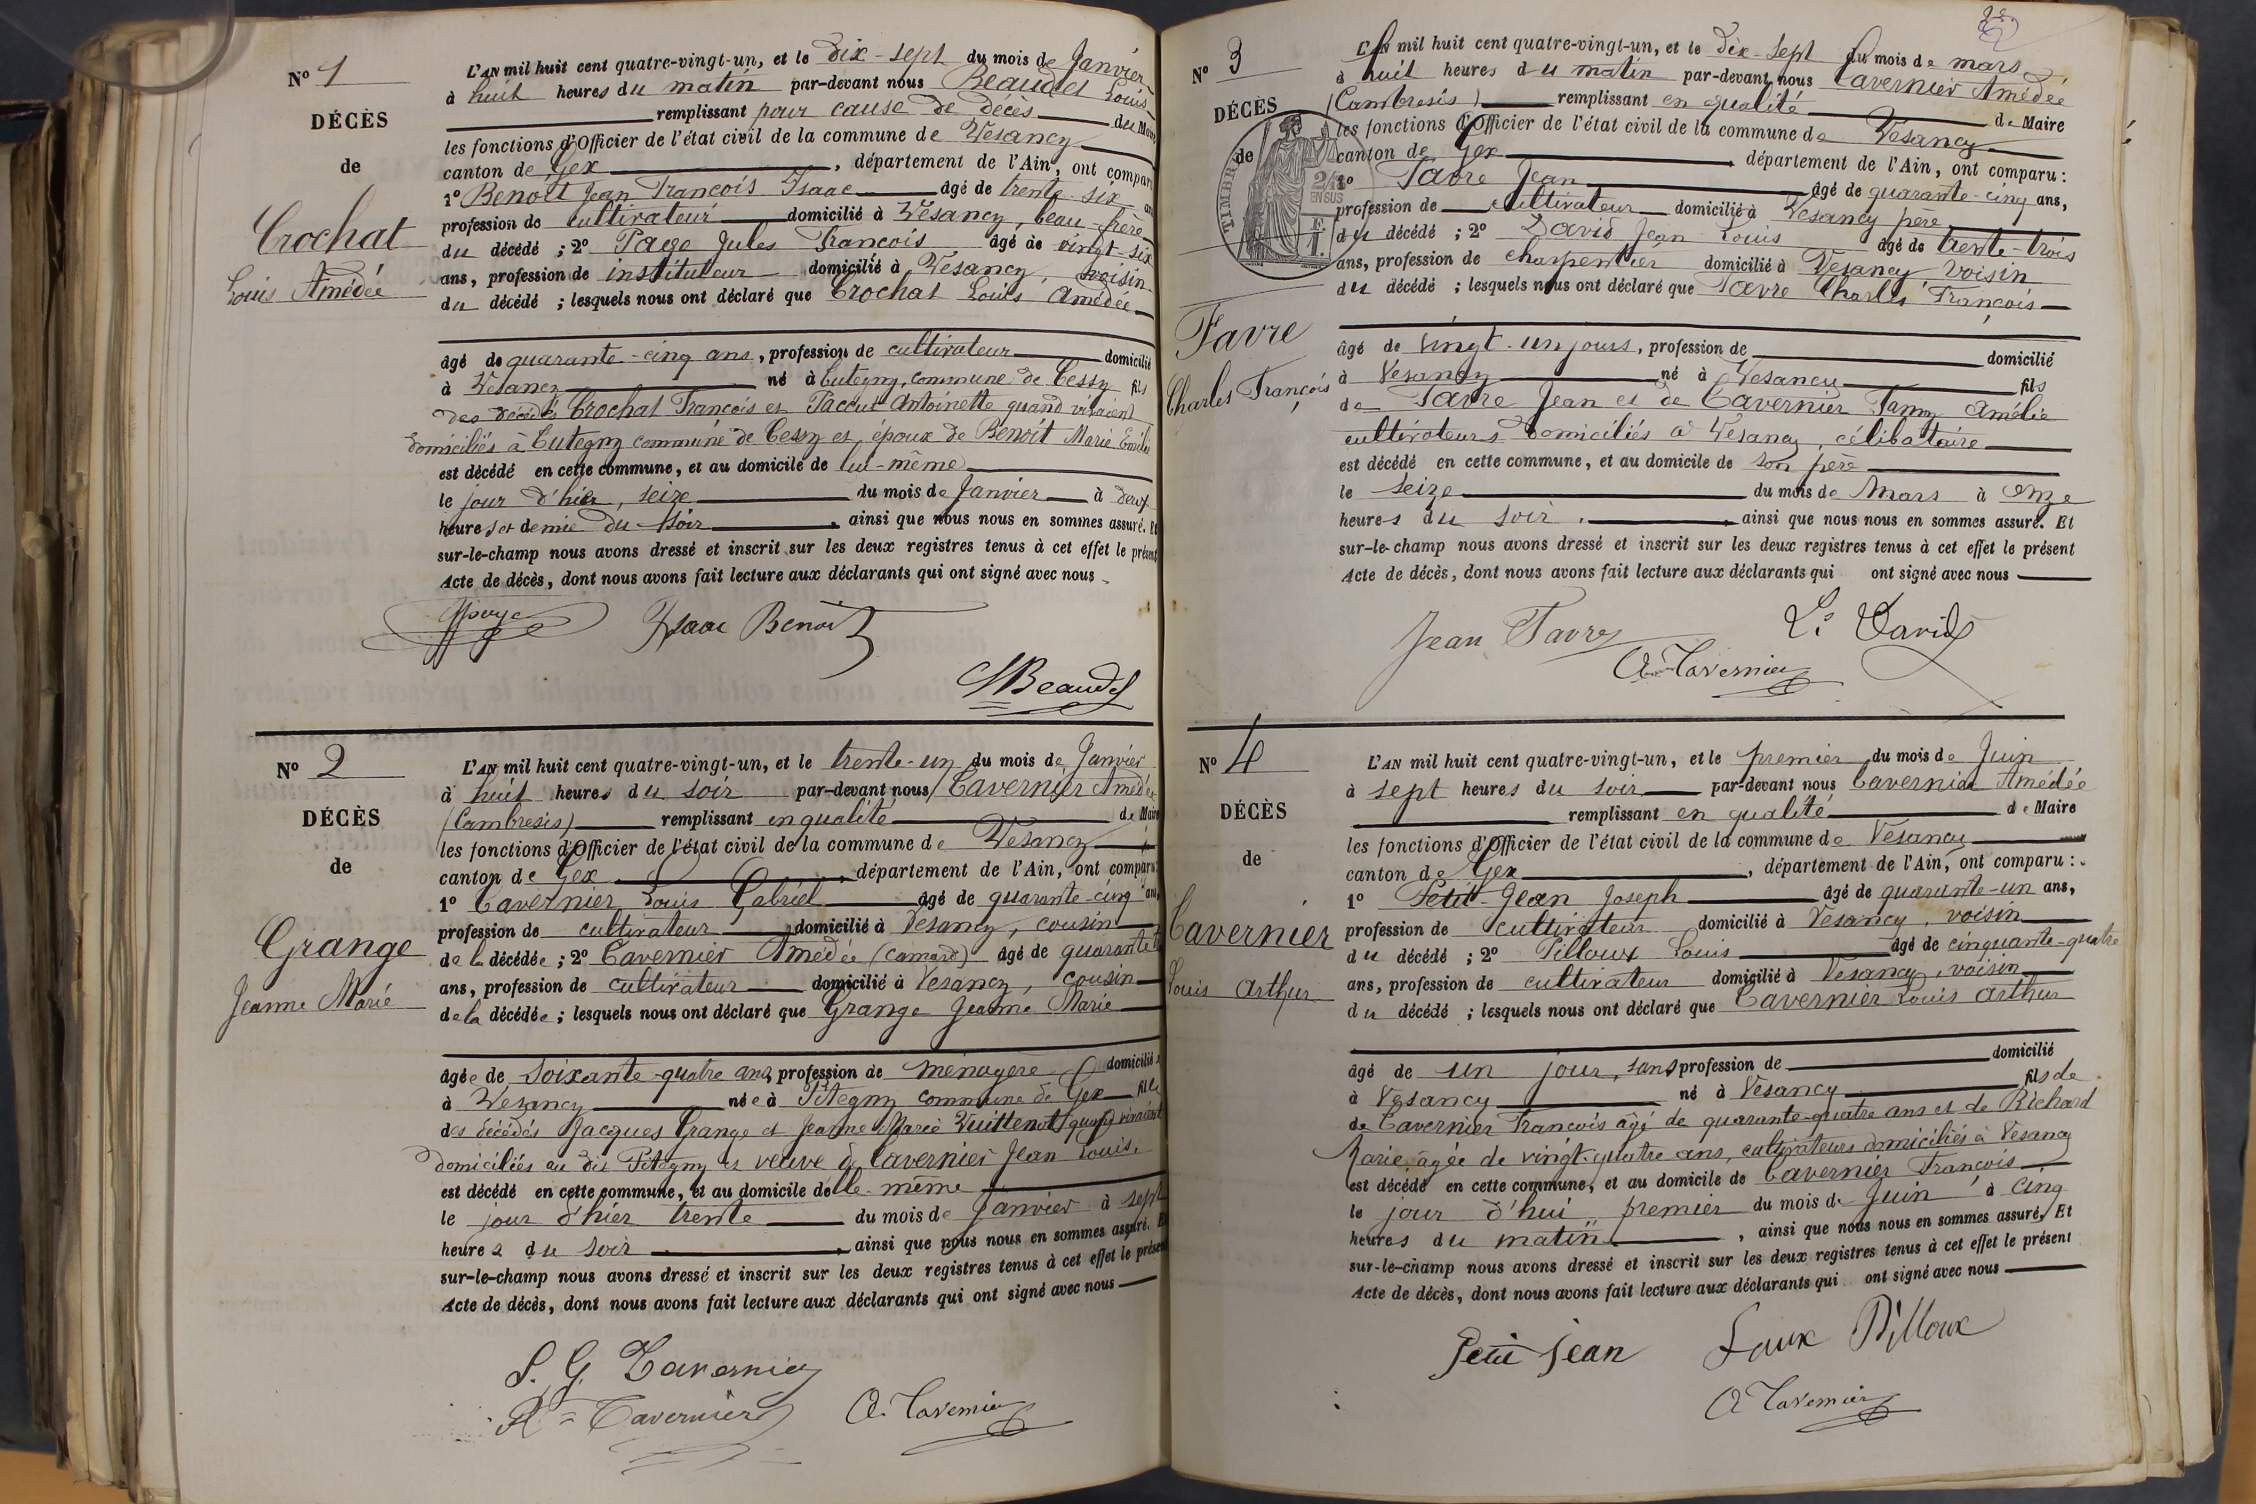 N° 1
DÉCÈS
de
Crochat
Louis Amédée
L'AN mil huit cent quatre-vingt-un, et le dix-sept du mois de Janvier
à huit heures du matin par-devant nous Beaudet Louis
remplissant pour cause de décès du Maire
les fonctions d'Officier de l'état civil de la commune de Vesancy
canton de Gex, département de l'Ain, ont comparu
1° Benoit Jean François Isaac âgé de trente-six ans
profession de cultivateur domicilié à Vesancy, beau-frère
du décédé ; 2° Page Jules François âgé de vingt-six
ans, profession de instituteur domicilié à Vesancy, voisin
du décédé ; lesquels nous ont déclaré que Crochat Louis Amédée
âgé de quarante-cinq ans, profession de cultivateur domicilié
à Vesancy né à Cutegny, commune de Cessy fils
des décédés Crochat François et Antoinette quand vivaient
domiciliés à Cutegny commune de Cessy et époux de Benoit Marie Emilie
est décédé en cette commune, et au domicile de lui-même
le jour d'hier, seize du mois de Janvier à deux
heures et demie du soir, ainsi que nous nous en sommes assuré. Et
sur-le-champ nous avons dressé et inscrit sur les deux registres tenus à cet effet le présent
Acte de décès, dont nous avons fait lecture aux déclarants qui ont signé avec nous
Isaac Benoit
Beaudet
N° 2
DÉCÈS
de
Grange
Jeanne Marie
L'AN mil huit cent quatre-vingt-un, et le trente-un du mois de Janvier
à huit heures du soir par-devant nous Tavernier Amédée
(Cambresis) remplissant en qualité de Maire
les fonctions d'Officier de l'état civil de la commune de Vesancy
canton de Gex, département de l'Ain, ont comparu
1° Tavernier Louis Gabriel âgé de quarante-cinq ans
profession de cultivateur domicilié à Vesancy, cousin
de la décédée ; 2° Tavernier Amédée (camard) âgé de quarante
ans, profession de cultivateur domicilié à Vesancy, cousin
de la décédée ; lesquels nous ont déclaré que Grange Jeanne Marie
âgée de soixante-quatre ans, profession de ménagère domiciliée
à Vesancy née à Pitegny commune de Gex fille
des décédés Jacques Grange et Jeanne Marie Vuittenot quand vivaient
domiciliés au dit Pitegny et veuve de Tavernier Jean Louis.
est décédé en cette commune, et au domicile de elle-même
le jour d'hier trente du mois de Janvier à sept
heures du soir, ainsi que nous nous en sommes assuré. Et
sur-le-champ nous avons dressé et inscrit sur les deux registres tenus à cet effet le présent
Acte de décès, dont nous avons fait lecture aux déclarants qui ont signé avec nous
L. G. Tavernier
A. Tavernier
N° 3
DÉCÈS
de
TIMBRE
2/10 EN SUS
Favre
Charles François
L'AN mil huit cent quatre-vingt-un, et le dix-sept du mois de mars
à huit heures du matin par-devant nous Tavernier Amédée
(Cambresis) remplissant en qualité de Maire
les fonctions d'Officier de l'état civil de la commune de Vesancy
canton de Gex, département de l'Ain, ont comparu :
1° Favre Jean âgé de quarante-cinq ans,
profession de cultivateur domicilié à Vesancy père
du décédé ; 2° David Jean Louis âgé de trente-trois
ans, profession de charpentier domicilié à Vesancy voisin
du décédé ; lesquels nous ont déclaré que Favre Charles François
âgé de vingt-un jours, profession de domicilié
à Vesancy né à Vesancy fils
de Favre Jean et de Tavernier Fanny Amélie
cultivateurs domiciliés à Vesancy, célibataire
est décédé en cette commune, et au domicile de son père
le seize du mois de Mars à onze
heures du soir, ainsi que nous nous en sommes assuré. Et
sur-le-champ nous avons dressé et inscrit sur les deux registres tenus à cet effet le présent
Acte de décès, dont nous avons fait lecture aux déclarants qui ont signé avec nous
Jean Favre
Ls David
A. Tavernier
N° 4
DÉCÈS
de
Tavernier
Louis Arthur
L'AN mil huit cent quatre-vingt-un, et le premier du mois de Juin
à sept heures du soir par-devant nous Tavernier Amédée
remplissant en qualité de Maire
les fonctions d'Officier de l'état civil de la commune de Vesancy
canton de Gex, département de l'Ain, ont comparu :
1° Petit-Jean Joseph âgé de quarante-un ans,
profession de cultivateur domicilié à Vesancy, voisin
du décédé ; 2° Pilloux Louis âgé de cinquante-quatre
ans, profession de cultivateur domicilié à Vesancy, voisin
du décédé ; lesquels nous ont déclaré que Tavernier Louis Arthur
âgé de un jour, sans profession de domicilié
à Vesancy né à Vesancy fils de
de Tavernier François âgé de quarante-quatre ans et de Richard
Marie, âgée de vingt-quatre ans, cultivateurs domiciliés à Vesancy
est décédé en cette commune, et au domicile de Tavernier François
le jour d'hui premier du mois de Juin à cinq
heures du matin, ainsi que nous nous en sommes assuré. Et
sur-le-champ nous avons dressé et inscrit sur les deux registres tenus à cet effet le présent
Acte de décès, dont nous avons fait lecture aux déclarants qui ont signé avec nous
Petit Jean
Pilloux
A Tavernier